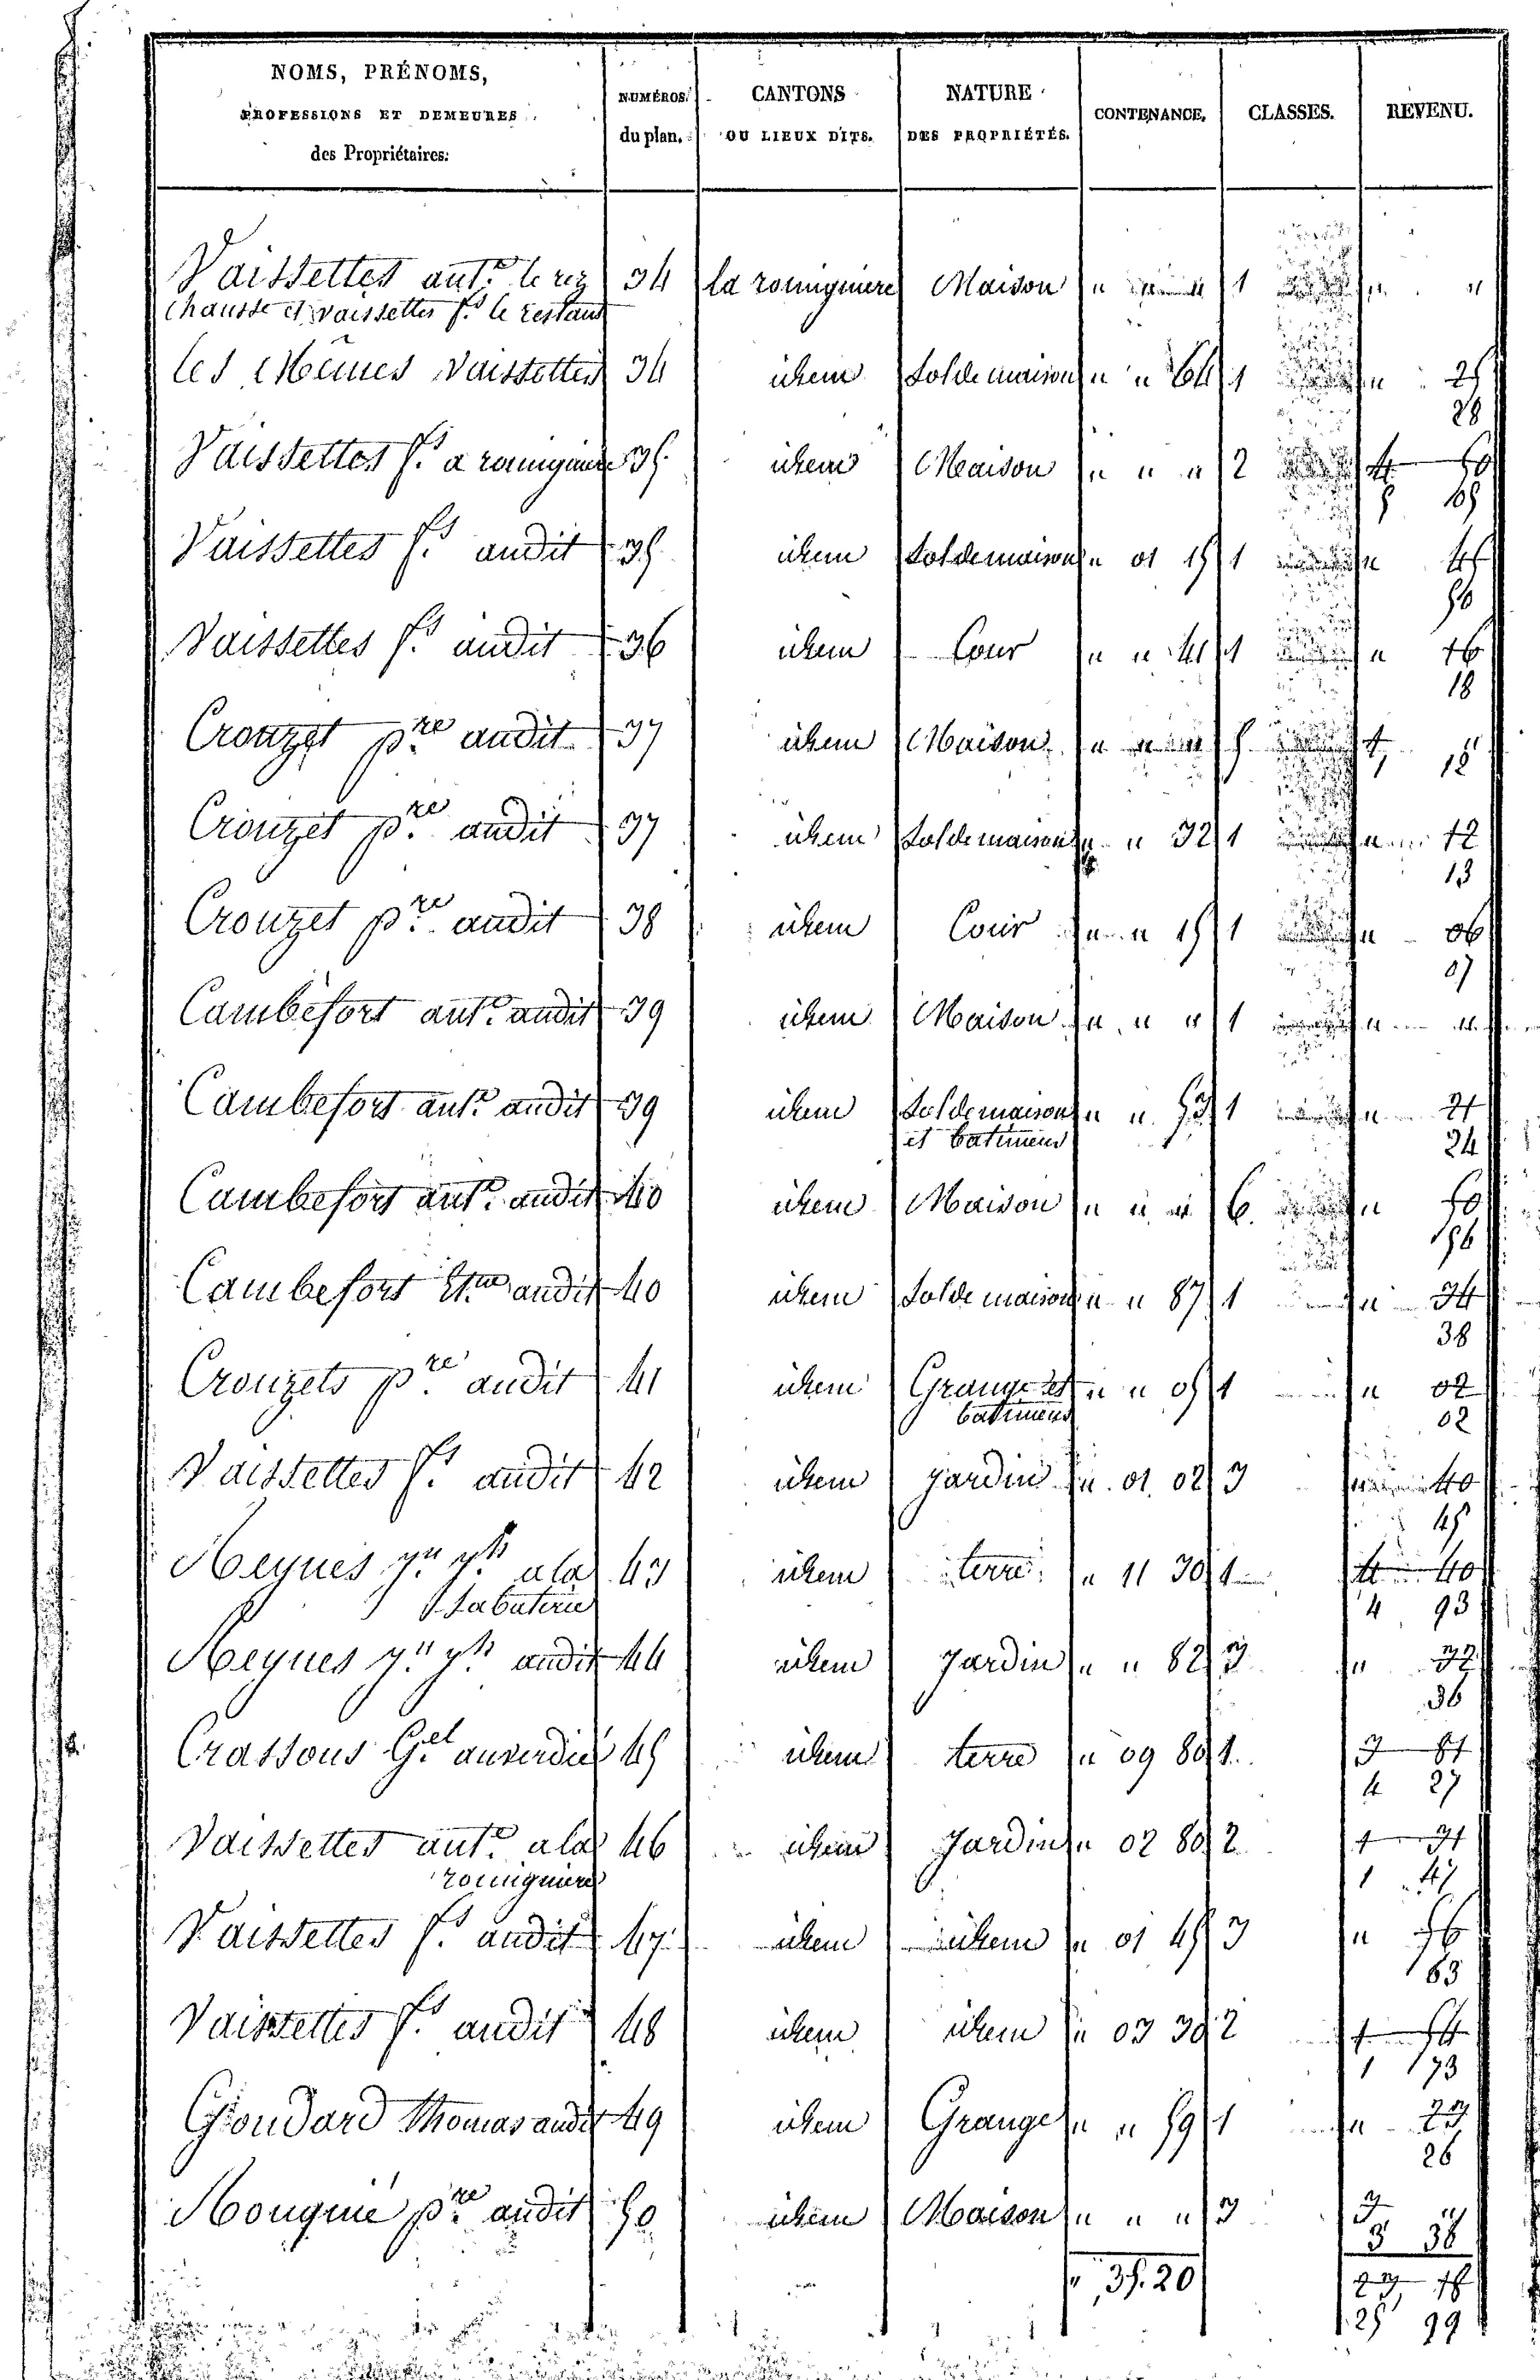 NOMS, PRÉNOMS,
PROFESSIONS ET DEMEURES
des Propriétaires.
NUMÉROS
du plan.
CANTONS
OU LIEUX DITS.
NATURE
DES PROPRIÉTÉS.
CONTENANCE.
CLASSES.
REVENU.
Vaissettes ant.e le rez 34 la rouiguiere Maison " 1 " "
chausse et vaissettes f.s le restant
les Mêmes Vaissettes 34 idem Sol de maison " " 64 1 " 25
28
Vaissettes f.s a rouiguiere 35 idem Maison " " " 2 4 50
5 05
Vaissettes f.s audit 35 idem Sol de maison " 01 15 1 " 45
50
Vaissettes f.s audit 36 idem Cour " " 41 1 " 16
18
Crouzet p.re audit 37 idem Maison " " " 5 1
1 12
Crouzet p.re audit 37 idem Sol de maison " " 32 1 " 12
13
Crouzet p.re audit 38 idem Cour " " 15 1 " 06
07
Cambefort ant.e audit 39 idem Maison " " " 1 " "
Cambefort ant.e audit 39 idem Sol de maison " " 53 1 " 21
et batimens 24
Cambefort ant.e audit 40 idem Maison " " " 6 " 50
56
Cambefort audit 40 idem Sol de maison " " 87 1 " 34
38
Crouzets p.re audit 41 idem Grange et " " 05 1 " 02
batimens 02
Vaissettes f.s audit 42 idem jardin " 01 02 3 " 40
45
a la 43 idem terre " 11 30 1 4 40
4 93
audit 44 idem Jardin " " 82 3 " 32
36
Crassous G.el 45 idem terre " 09 80 1 3 81
4 27
Vaissettes ant.e a la 46 idem Jardin " 02 80 2 1 31
rouiguiere 1 47
Vaissettes f.s audit 47 idem idem " 01 45 3 " 56
63
Vaissettes f.s audit 48 idem idem " 03 30 2 1 54
1 73
Goudard Thomas audit 49 idem Grange " " 59 1 " 23
26
p.re audit 50 idem Maison " " " 3 3 "
3 36
" 39. 20 23 18
25 99